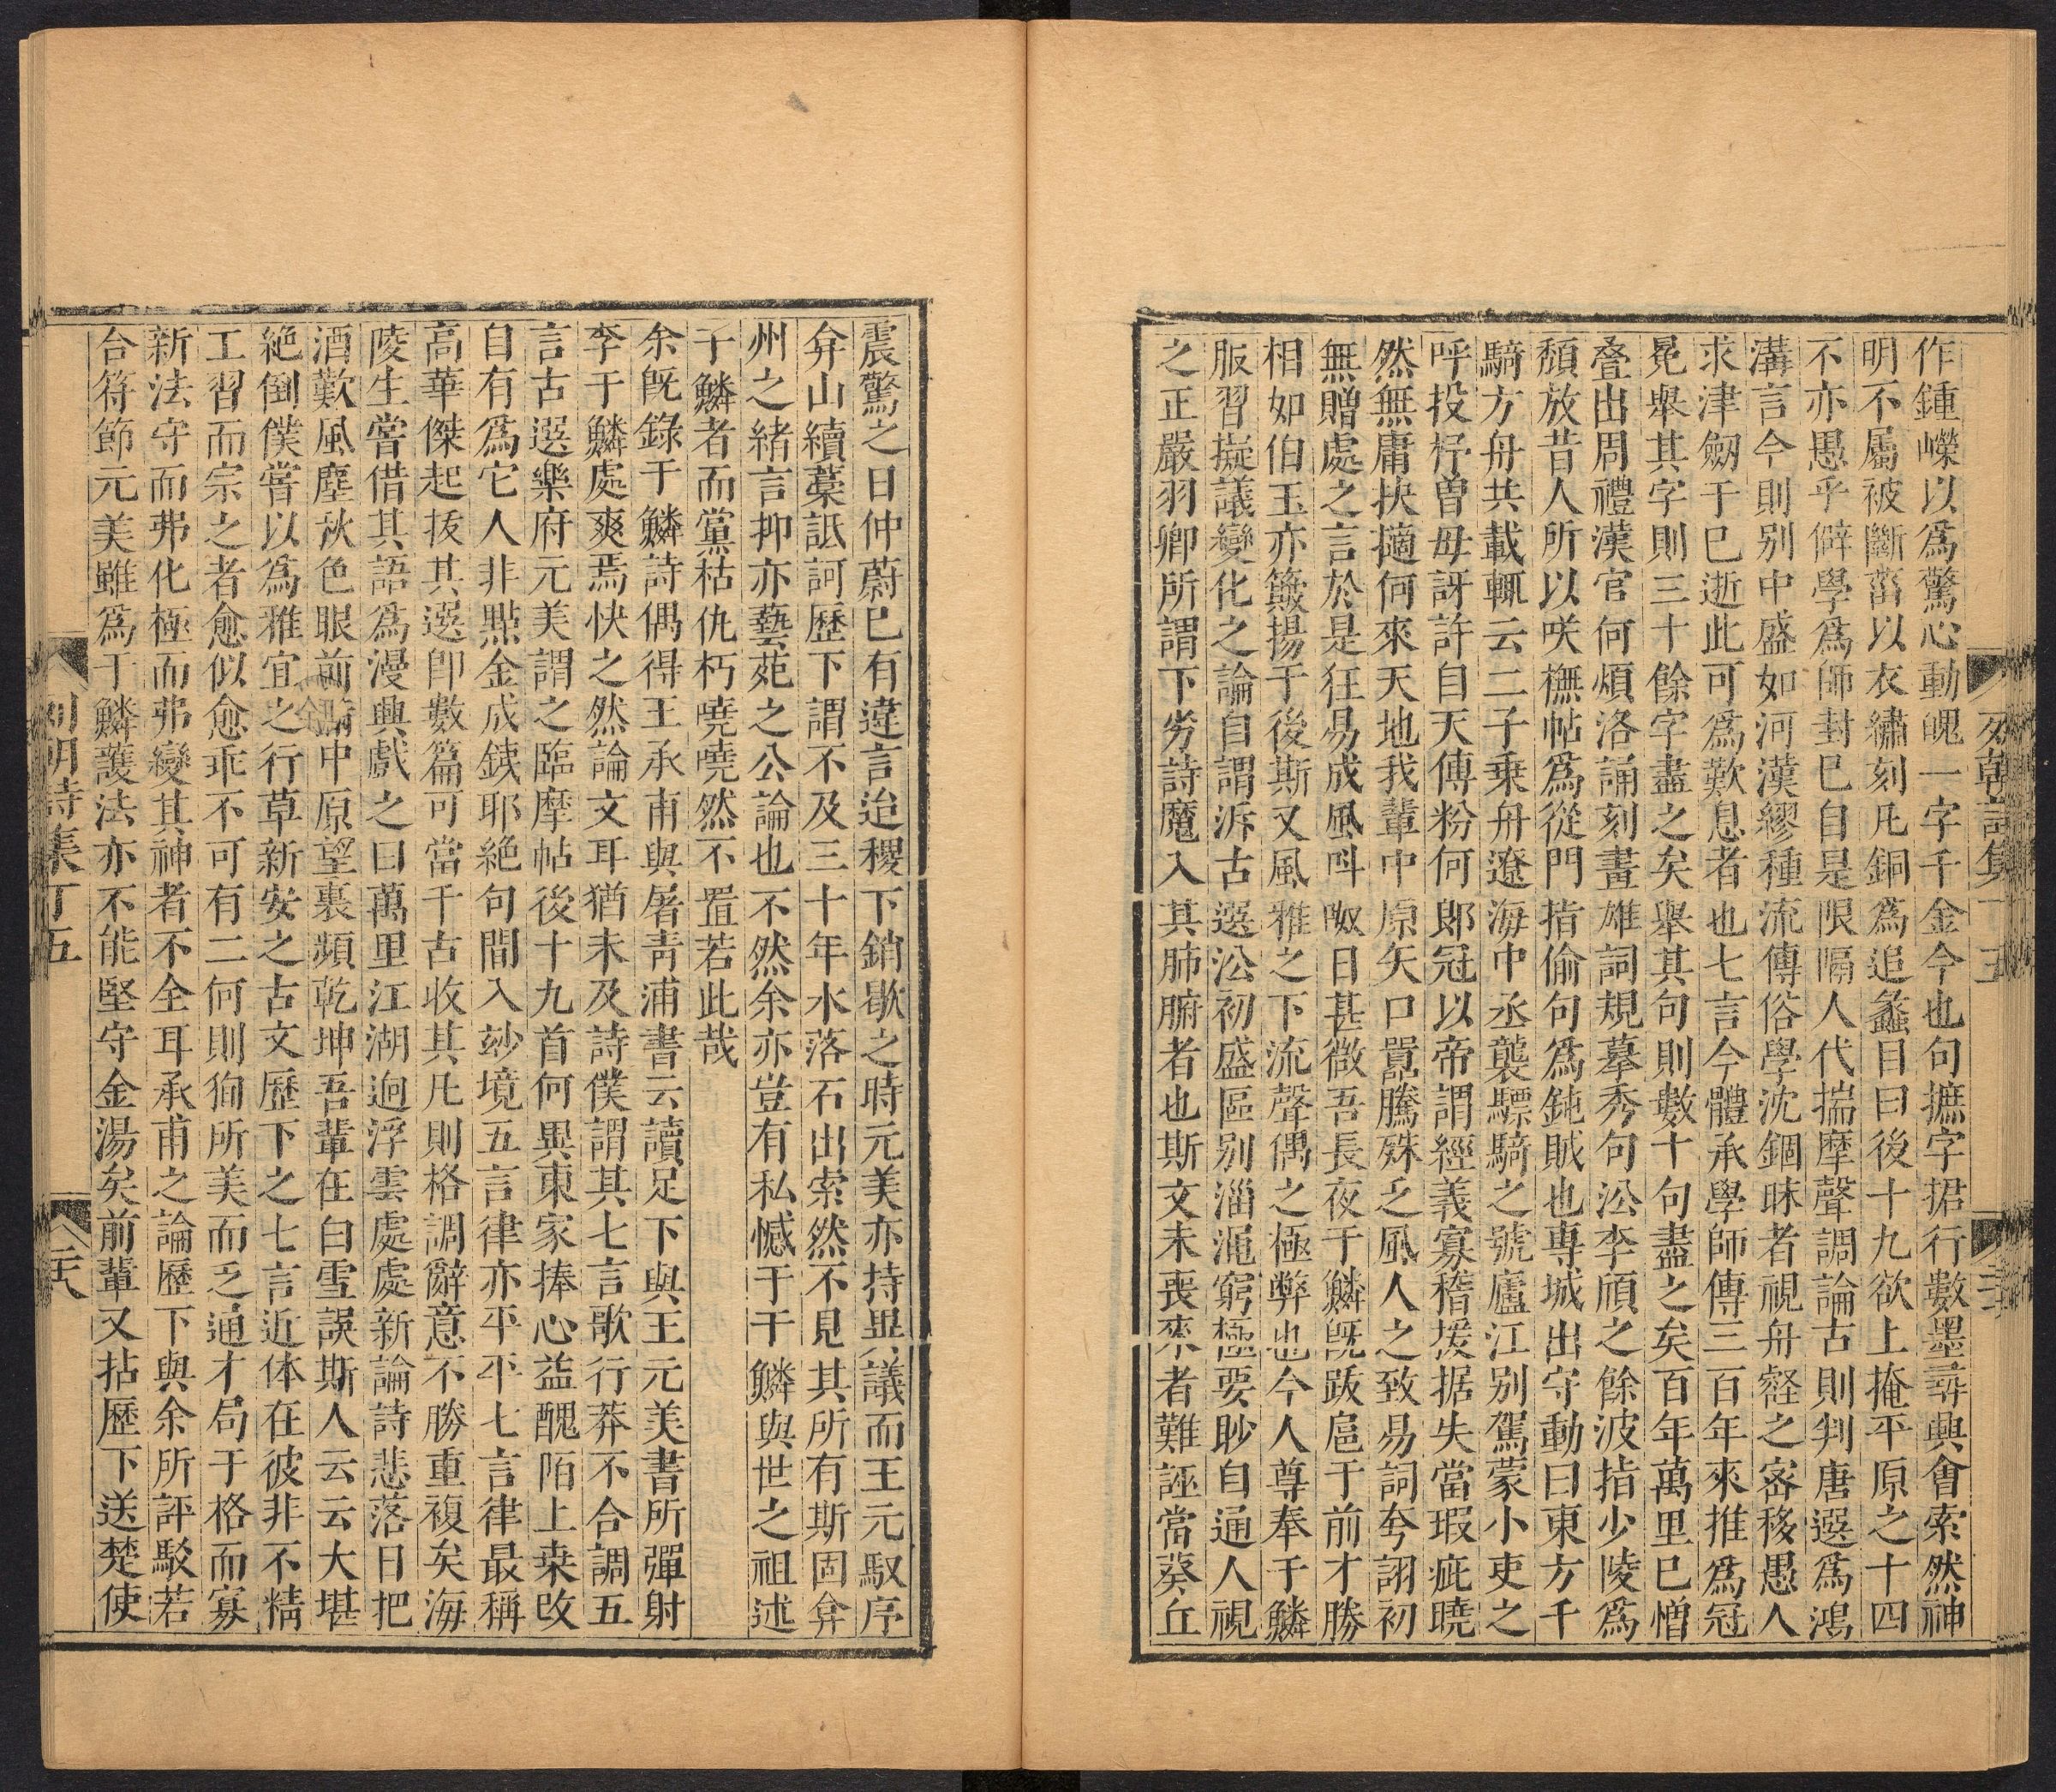 作鍾嶸以為驚心動魄一字千金今也句摭字捃行數墨尋興會索然神
明不屬被斷菑以衣繡刻凡銅為追蠡目曰後十九欲上掩平原之十四
不亦愚乎僻學為師封已自是限隔人代揣摩聲調論古則判唐選為鴻
溝言今則别中盛如河漢繆種流傳俗學沈錮昧者視舟壑之密移愚人
求津劒于已逝此可為歎息者也七言今體承學師傳三百年來推為冠
冕舉其字則三十餘字盡之矣舉其句則數十句盡之矣百年萬里已憎
叠出周禮漢官何煩洛誦刻畫雄詞規摹秀句㳂李頎之餘波指少陵為
頹放昔人所以咲橅帖為從門指偷句為鈍賊也專城出守動曰東方千
騎方舟共載輒云二子乗舟遼海中丞襲驃騎之號廬江别駕蒙小吏之
呼投杼曽毋訝許自天傅粉何郎冠以帝謂經義寡稽援据失當瑕疵曉
然無庸抉擿何來天地我輩中原矢口囂騰殊乏風人之致易詞夸詡初
無贈處之言於是狂易成風呌呶日甚微吾長夜于鱗旣跋扈于前才勝
相如伯玉亦簸揚于後斯又風雅之下流聲偶之極弊也今人尊奉于鱗
服習擬議變化之論自謂泝古選㳂初盛區别淄澠窮極要眇自通人視
之正嚴羽卿所謂下劣詩魔入其肺腑者也斯文未喪來者難誣當葵丘
列朝詩集 丁五
震驚之日仲蔚已有違言迨稷下銷歇之時元美亦持異議而王元馭序
弇山續藁詆訶歷下謂不及三十年水落石出索然不見其所有斯固弇
州之緒言抑亦藝苑之公論也不然余亦豈有私憾于于鱗與世之祖述
于鱗者而黨枯仇朽嘵嘵然不置若此哉
余旣錄于鱗詩偶得王承甫與屠靑浦書云讀足下與王元美書所彈射
李于鱗處爽焉快之然論文耳猶未及詩僕謂其七言歌行莽不合調五
言古選樂府元美謂之臨摩帖後十九首何異東家捧心益醜陌上桒改
自有為它人非點金成鐵耶絶句間入玅境五言律亦平平七言律最稱
高華傑起拔其選卽數篇可當千古收其凡則格調辭意不勝重複矣海
陵生嘗借其語為漫興戲之曰萬里江湖迥浮雲處處新論詩悲落日把
酒歎風塵秋色眼前中原望裏頻乾坤吾輩在白雪誤斯人云云大堪
絶倒僕嘗以為雅宜之行草新安之古文歷下之七言近体在彼非不精
工習而宗之者愈似愈乖不可有二何則狥所美而乏通才局于格而寡
新法守而弗化極而弗變其神者不全耳承甫之論歷下與余所評駁若
合符節元美雖為于鱗護法亦不能堅守金湯矣前輩又拈歷下送楚使
列朝詩集丁五